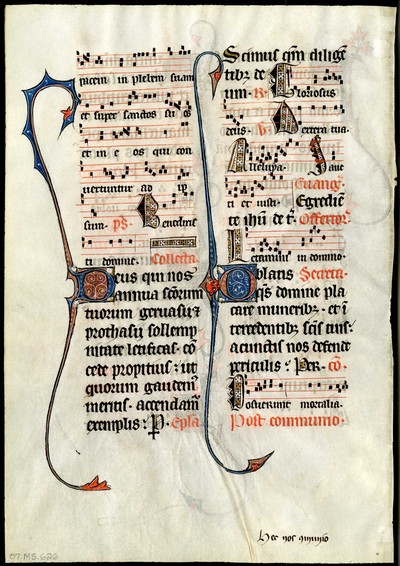 pacem in plebem suam
et super sanctos su os
et in e os qui con
vertuntur ad ip
sum. ps. Benedixi
sti domine. Collecta.
Deus qui nos
annua sc̄orum
tuorum geruasij ⁊
prothasij sollemp
nitate letificas. cō
cede propitius: ut
quorum gaudem⁹
meritis. accendam̄
exemplis: P. Ep̄la
Scimus qm̄ diligē
tib⁊ de
um. R. Gloriosus
deus. V. Dextera tua.
Alleluya. Iusti et iusti. Euanḡ.
Egredien
te ih̄u de t̄. Offertor̄.
Letamini in domino.
Oblatis Secreta.
qs̄ domine pla
care muneribꝫ. et ī
tercedentibꝫ sc̄is tuis.
a cunctis nos defende
periculis: Per. cō.
Posuerunt mortalia.
Post communio.
Hec nos 9munio
07.MS.626